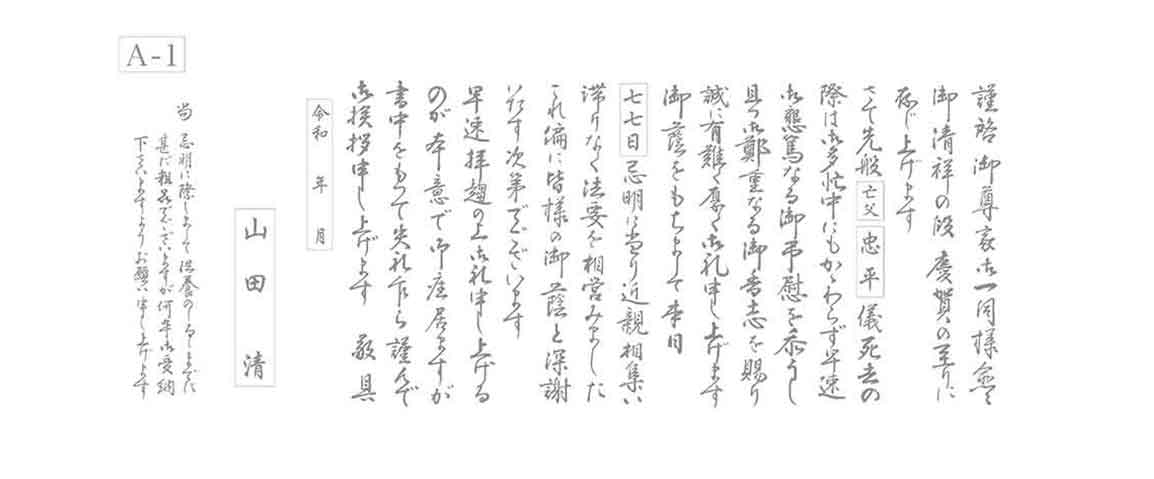 A-1
謹啓 御尊家御一同様愈々
御清祥の段 慶賀の至りに
存じ上げます
さて先般 亡父 忠平 儀 死去の
際は御多忙中にもかゝわらず早速
御懇篤なる御弔慰を忝うし
且つ御鄭重なる御香志を賜り
誠に有難く厚く御礼申し上げます
御蔭をもちまして本日
七七日忌明に当り近親相集い
滞りなく法要を相営みました
これ偏に皆様の御蔭と深謝
いたす次第でございます
早速拝趨の上御礼申し上げる
のが本意で御座居ますが
書中をもって失礼乍ら謹んで
御挨拶申し上げます 敬具
令和 年 月
山田 清
当 忌明に際しまして供養のしるしまでに
甚だ粗品でございますが何卒御受納
下さいますようお願い申し上げます